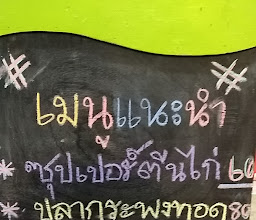 # เมนูแนะนำ #
* ซุปเปอร์ตีนไก่ 60
* ปลากระพงทอด 80